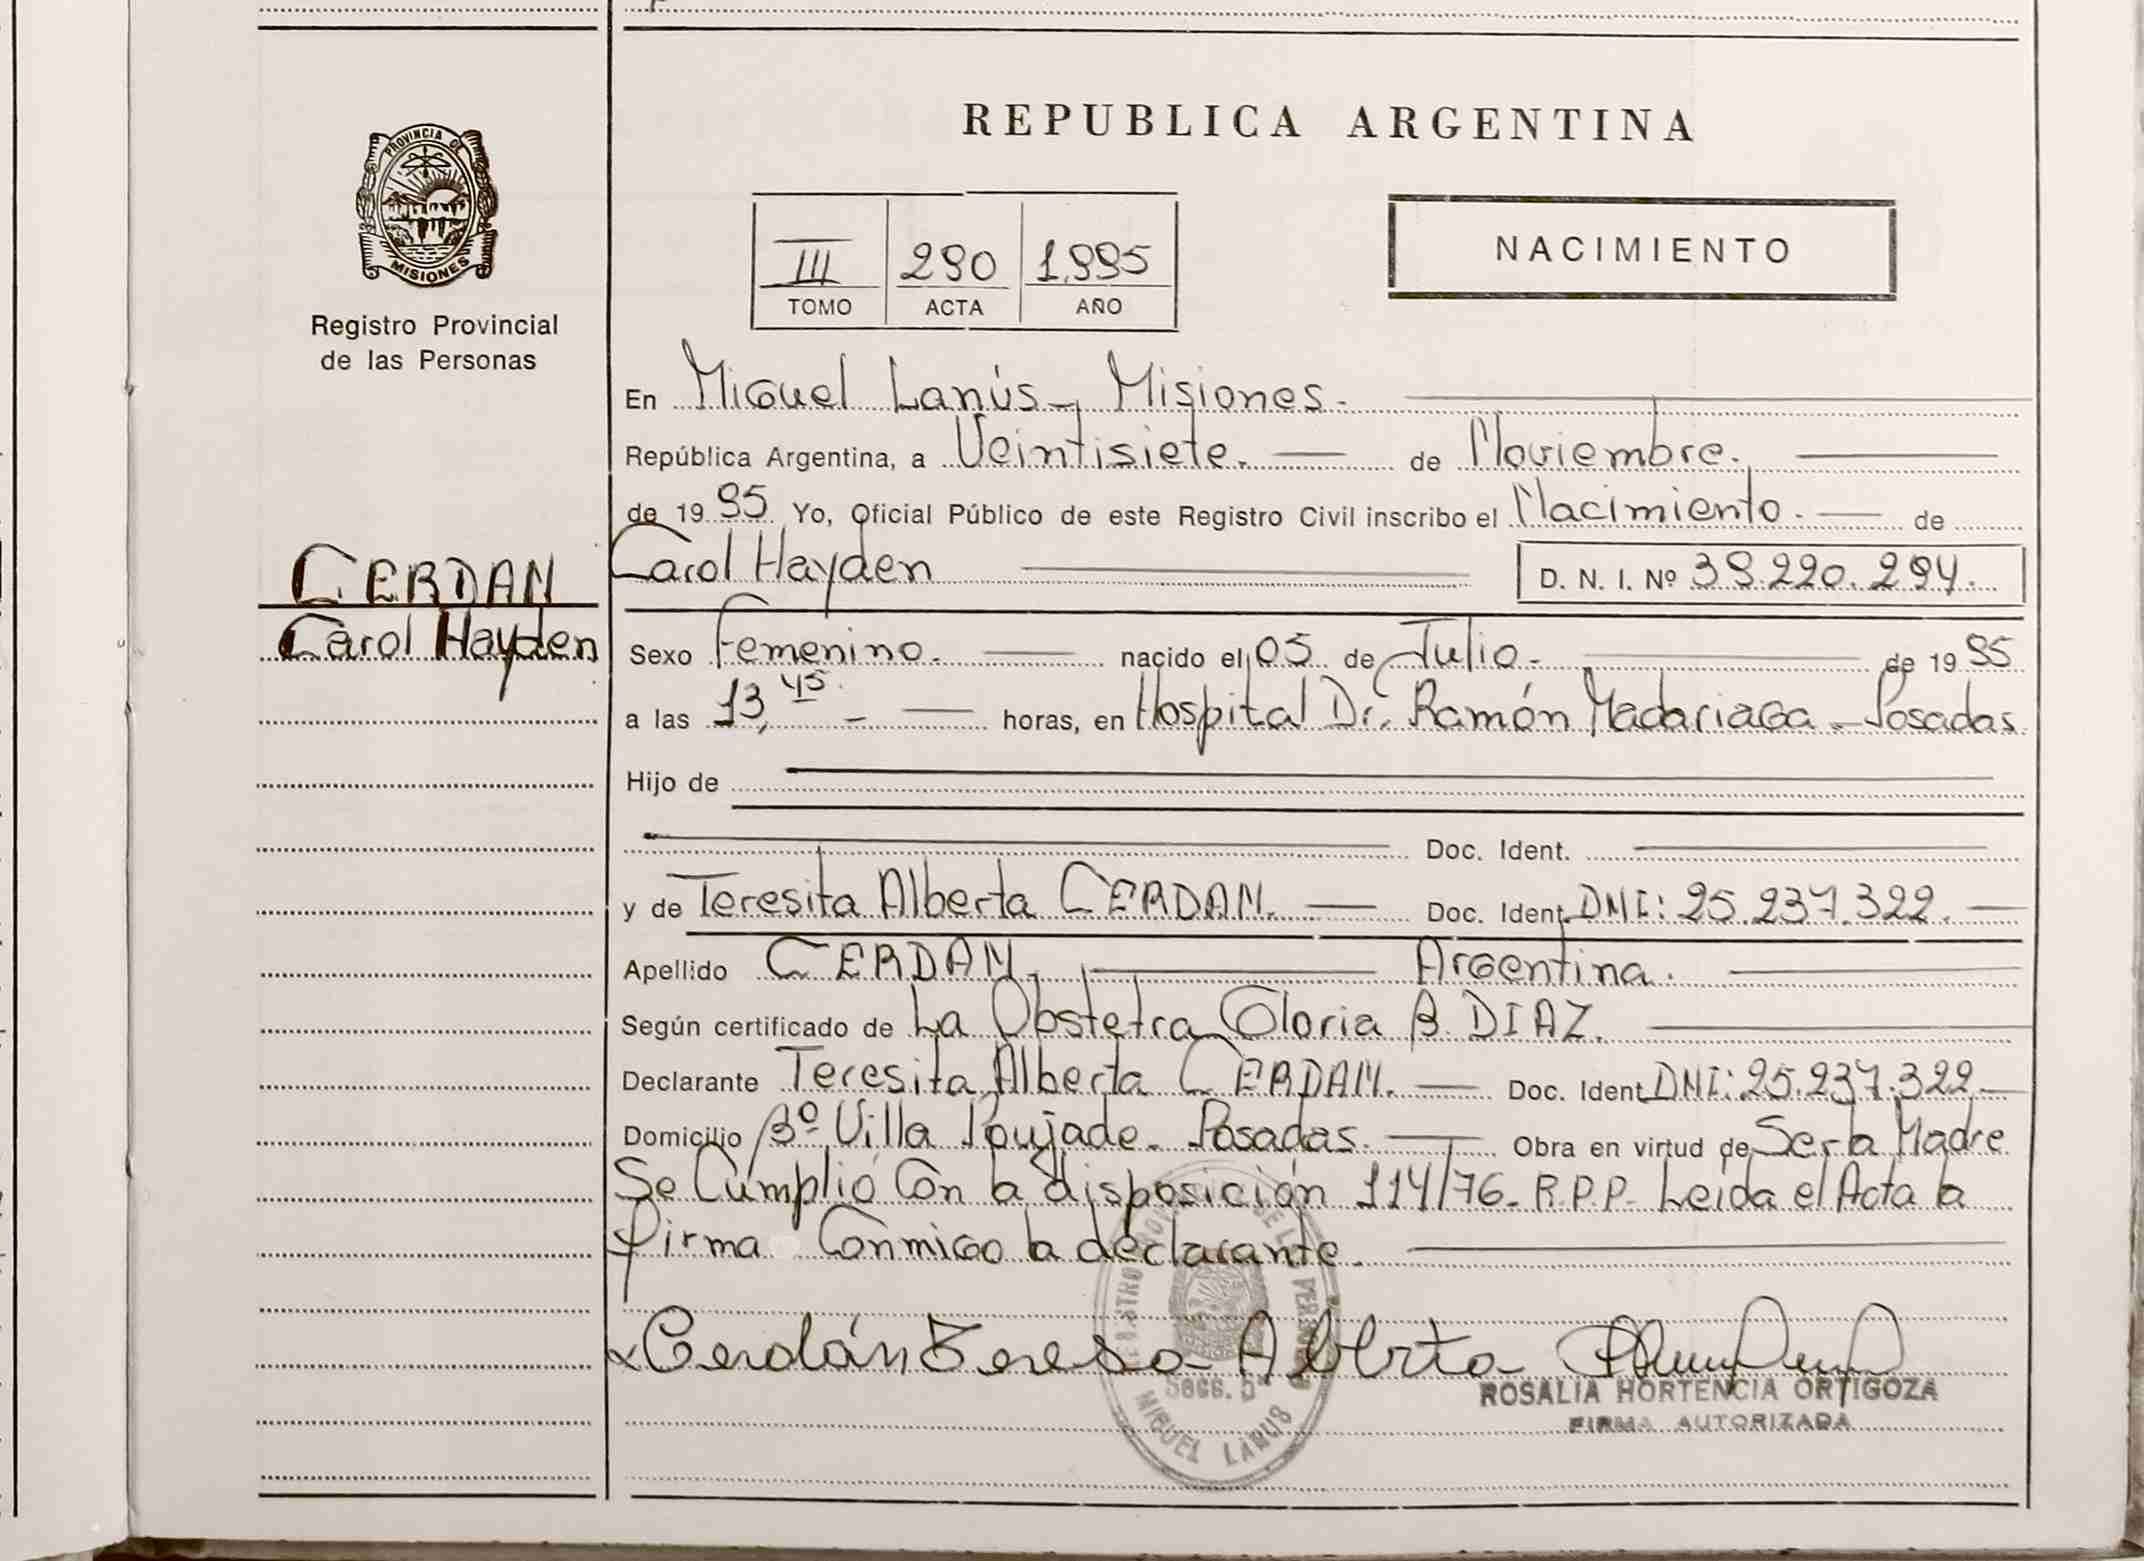 REPUBLICA ARGENTINA
PROVINCIA DE
MISIONES
Registro Provincial
de las Personas
III 290 1.995
TOMO ACTA AÑO
NACIMIENTO
En Miguel Lanús - Misiones.
República Argentina, a Veintisiete. de Noviembre.
de 19 95 Yo, Oficial Público de este Registro Civil inscribo el Nacimiento. de
CERDAN
Carol Hayden
Carol Hayden D. N. I. Nº 39.220.294.
Sexo Femenino. nacido el 05 de Julio. de 19 95
a las 13,45 horas, en Hospital Dr. Ramón Madariaga - Posadas.
Hijo de
Doc. Ident.
y de Teresita Alberta CERDAN. Doc. Ident. DNI: 25.237.322.
Apellido CERDAN. Argentina.
Según certificado de La Obstetra Gloria B. DIAZ.
Declarante Teresita Alberta CERDAN. Doc. Ident. DNI: 25.237.322.
Domicilio Bº Villa Poujade - Posadas. Obra en virtud de Ser la Madre
Se Cumplió Con la disposición 114/76 - R.P.P- Leida el Acta la
firma Conmigo la declarante.
Cerdán Teresa Alberta
ROSALIA HORTENCIA ORTIGOZA
FIRMA AUTORIZADA
MIGUEL LANUS